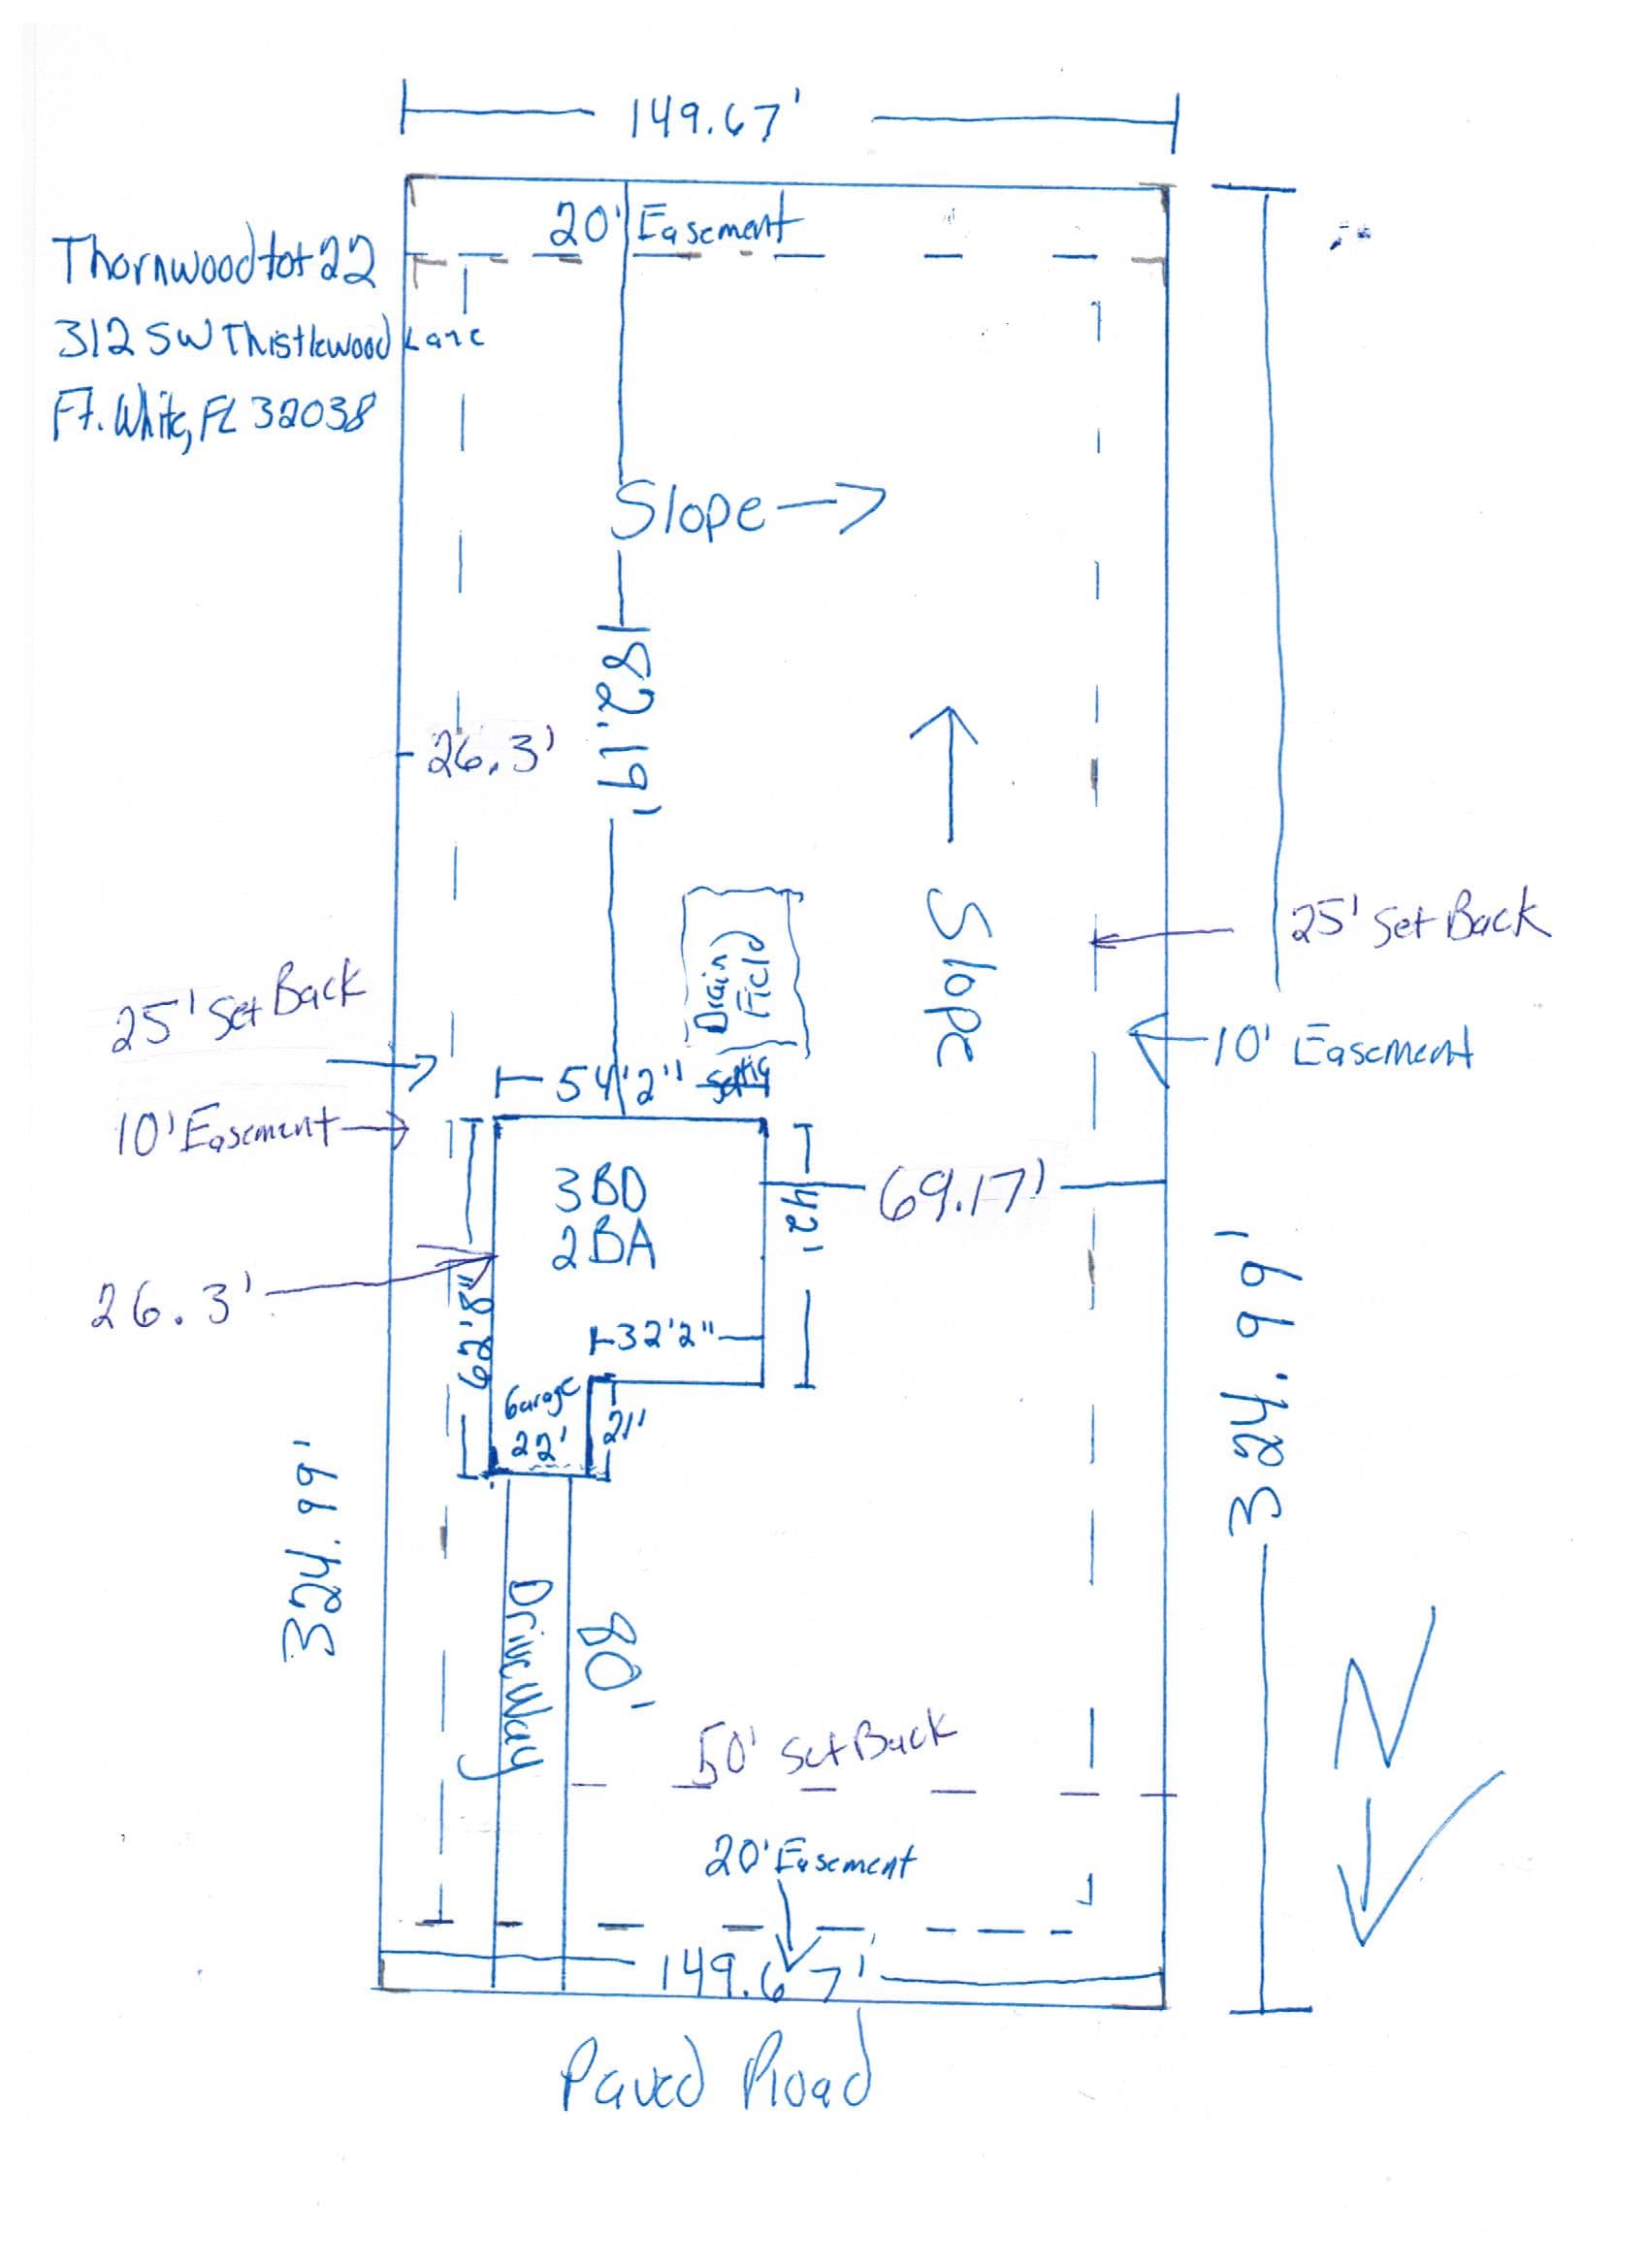 149.67'
20' Easement
Thornwood Lot 22
312 SW Thistlewood Lane
Ft. White, FL 32038
Slope
182.19'
26.3'
Slope
Drain
Field
25' Set Back
25' Set Back
10' Easement
54'2"
Septic
10' Easement
3BD
2BA
42'
69.17'
26.3'
62'8"
32'2"
Garage
22'
21'
324.99'
324.99'
Drive Way
80'
50' Set Back
20' Easement
N
149.67'
Paved Road